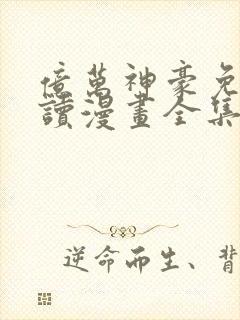 億萬神豪免
讀漫畫全集
逆命而生、背